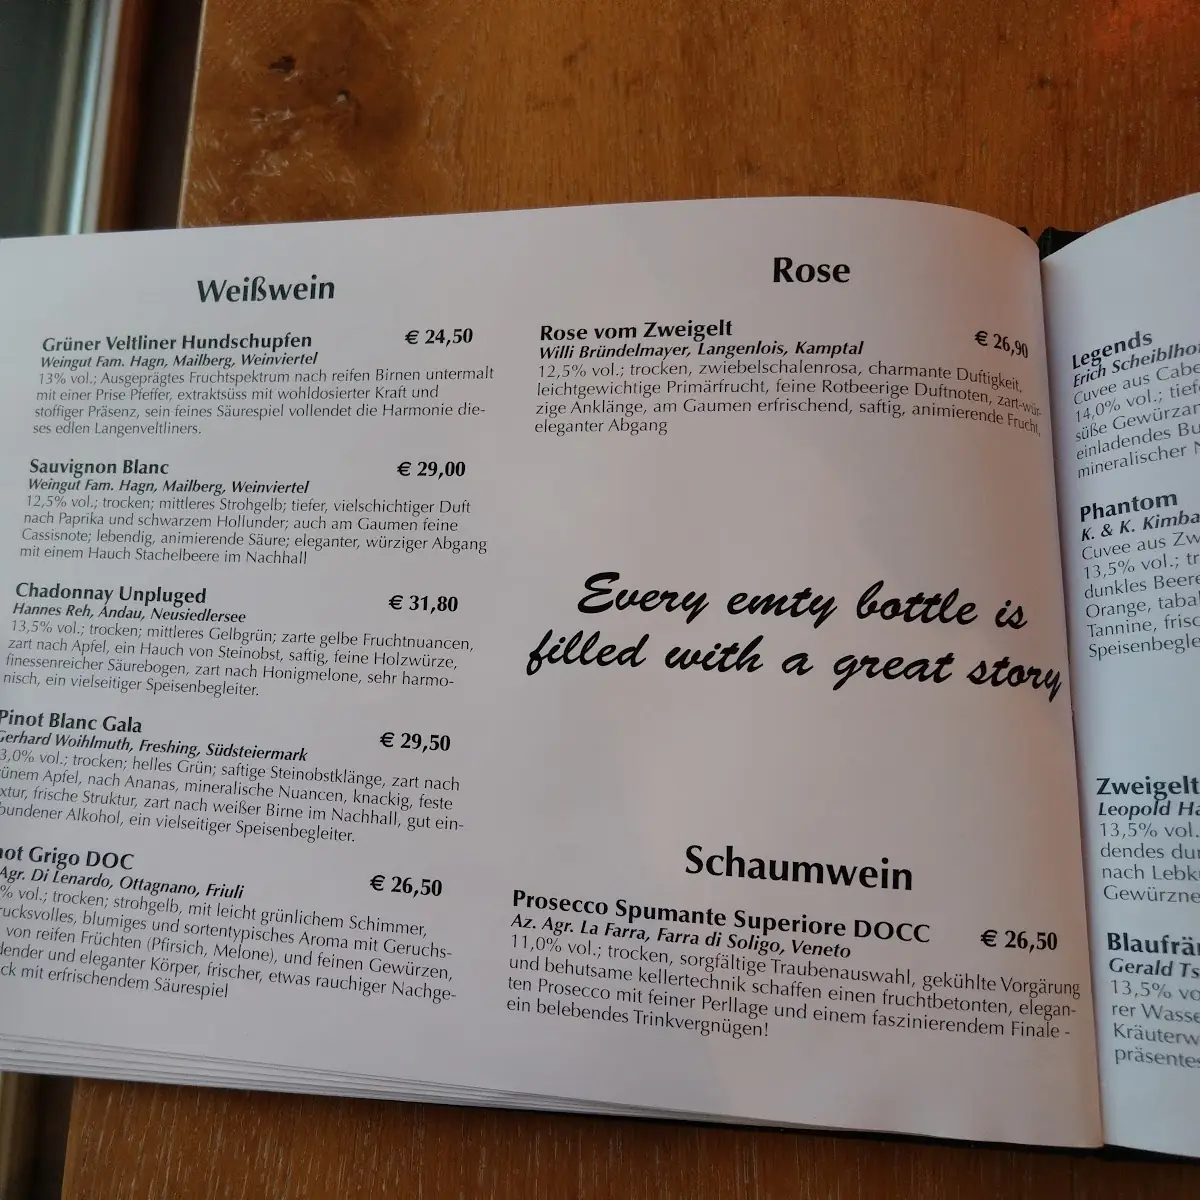 Weißwein
Grüner Veltliner Hundschupfen € 24,50
Weingut Fam. Hagn, Mailberg, Weinviertel
13% vol.; Ausgeprägtes Fruchtspektrum nach reifen Birnen untermalt
mit einer Prise Pfeffer, extraktsüss mit wohldosierter Kraft und
stoffiger Präsenz, sein feines Säurespiel vollendet die Harmonie die-
ses edlen Langenveltliners.
Sauvignon Blanc € 29,00
Weingut Fam. Hagn, Mailberg, Weinviertel
12,5% vol.; trocken; mittleres Strohgelb; tiefer, vielschichtiger Duft
nach Paprika und schwarzem Hollunder; auch am Gaumen feine
Cassisnote; lebendig, animierende Säure; eleganter, würziger Abgang
mit einem Hauch Stachelbeere im Nachhall
Chadonnay Unpluged € 31,80
Hannes Reh, Andau, Neusiedlersee
13,5% vol.; trocken; mittleres Gelbgrün; zarte gelbe Fruchtnuancen,
zart nach Apfel, ein Hauch von Steinobst, saftig, feine Holzwürze,
finessenreicher Säurebogen, zart nach Honigmelone, sehr harmo-
nisch, ein vielseitiger Speisenbegleiter.
Pinot Blanc Gala € 29,50
Gerhard Woihlmuth, Freshing, Südsteiermark
3,0% vol.; trocken; helles Grün; saftige Steinobstklänge, zart nach
ünem Apfel, nach Ananas, mineralische Nuancen, knackig, feste
xtur, frische Struktur, zart nach weißer Birne im Nachhall, gut ein-
bundener Alkohol, ein vielseitiger Speisenbegleiter.
not Grigo DOC € 26,50
Agr. Di Lenardo, Ottagnano, Friuli
% vol.; trocken; strohgelb, mit leicht grünlichem Schimmer,
rucksvolles, blumiges und sortentypisches Aroma mit Geruchs-
von reifen Früchten (Pfirsich, Melone), und feinen Gewürzen,
dender und eleganter Körper, frischer, etwas rauchiger Nachge-
ck mit erfrischendem Säurespiel
Rose
Rose vom Zweigelt € 26,90
Willi Bründelmayer, Langenlois, Kamptal
12,5% vol.; trocken, zwiebelschalenrosa, charmante Duftigkeit,
leichtgewichtige Primärfrucht, feine Rotbeerige Duftnoten, zart-wür-
zige Anklänge, am Gaumen erfrischend, saftig, animierende Frucht,
eleganter Abgang
Every emty bottle is
filled with a great story
Schaumwein
Prosecco Spumante Superiore DOCC € 26,50
Az. Agr. La Farra, Farra di Soligo, Veneto
11,0% vol.; trocken, sorgfältige Traubenauswahl, gekühlte Vorgärung
und behutsame kellertechnik schaffen einen fruchtbetonten, elegan-
ten Prosecco mit feiner Perllage und einem faszinierendem Finale -
ein belebendes Trinkvergnügen!
Legends
Erich Scheiblhof
Cuvee aus Cabe
14,0% vol.; tief
süße Gewürzar
einladendes Bu
mineralischer N
Phantom
K. & K. Kimba
Cuvee aus Zw
13,5% vol.; tr
dunkles Beere
Orange, tabal
Tannine, frisc
Speisenbegle
Zweigelt
Leopold Ha
13,5% vol.
dendes du
nach Lebk
Gewürzne
Blaufrän
Gerald Ts
13,5% vo
rer Wasse
Kräuterw
präsentes